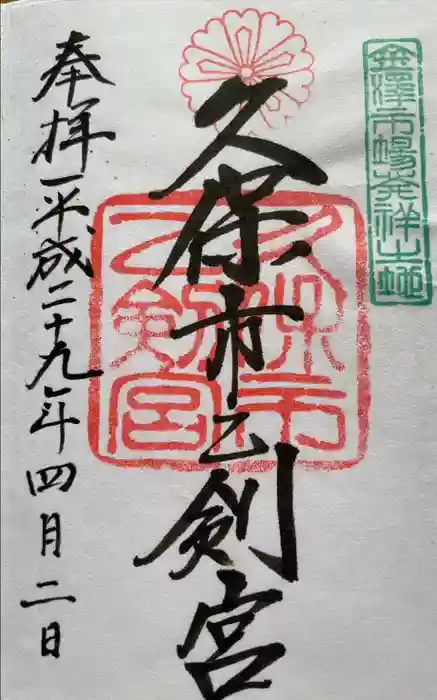 金澤市場発祥之地
久保市乙剣宮
久保市乙剣宮
奉拝 平成二十九年四月二日